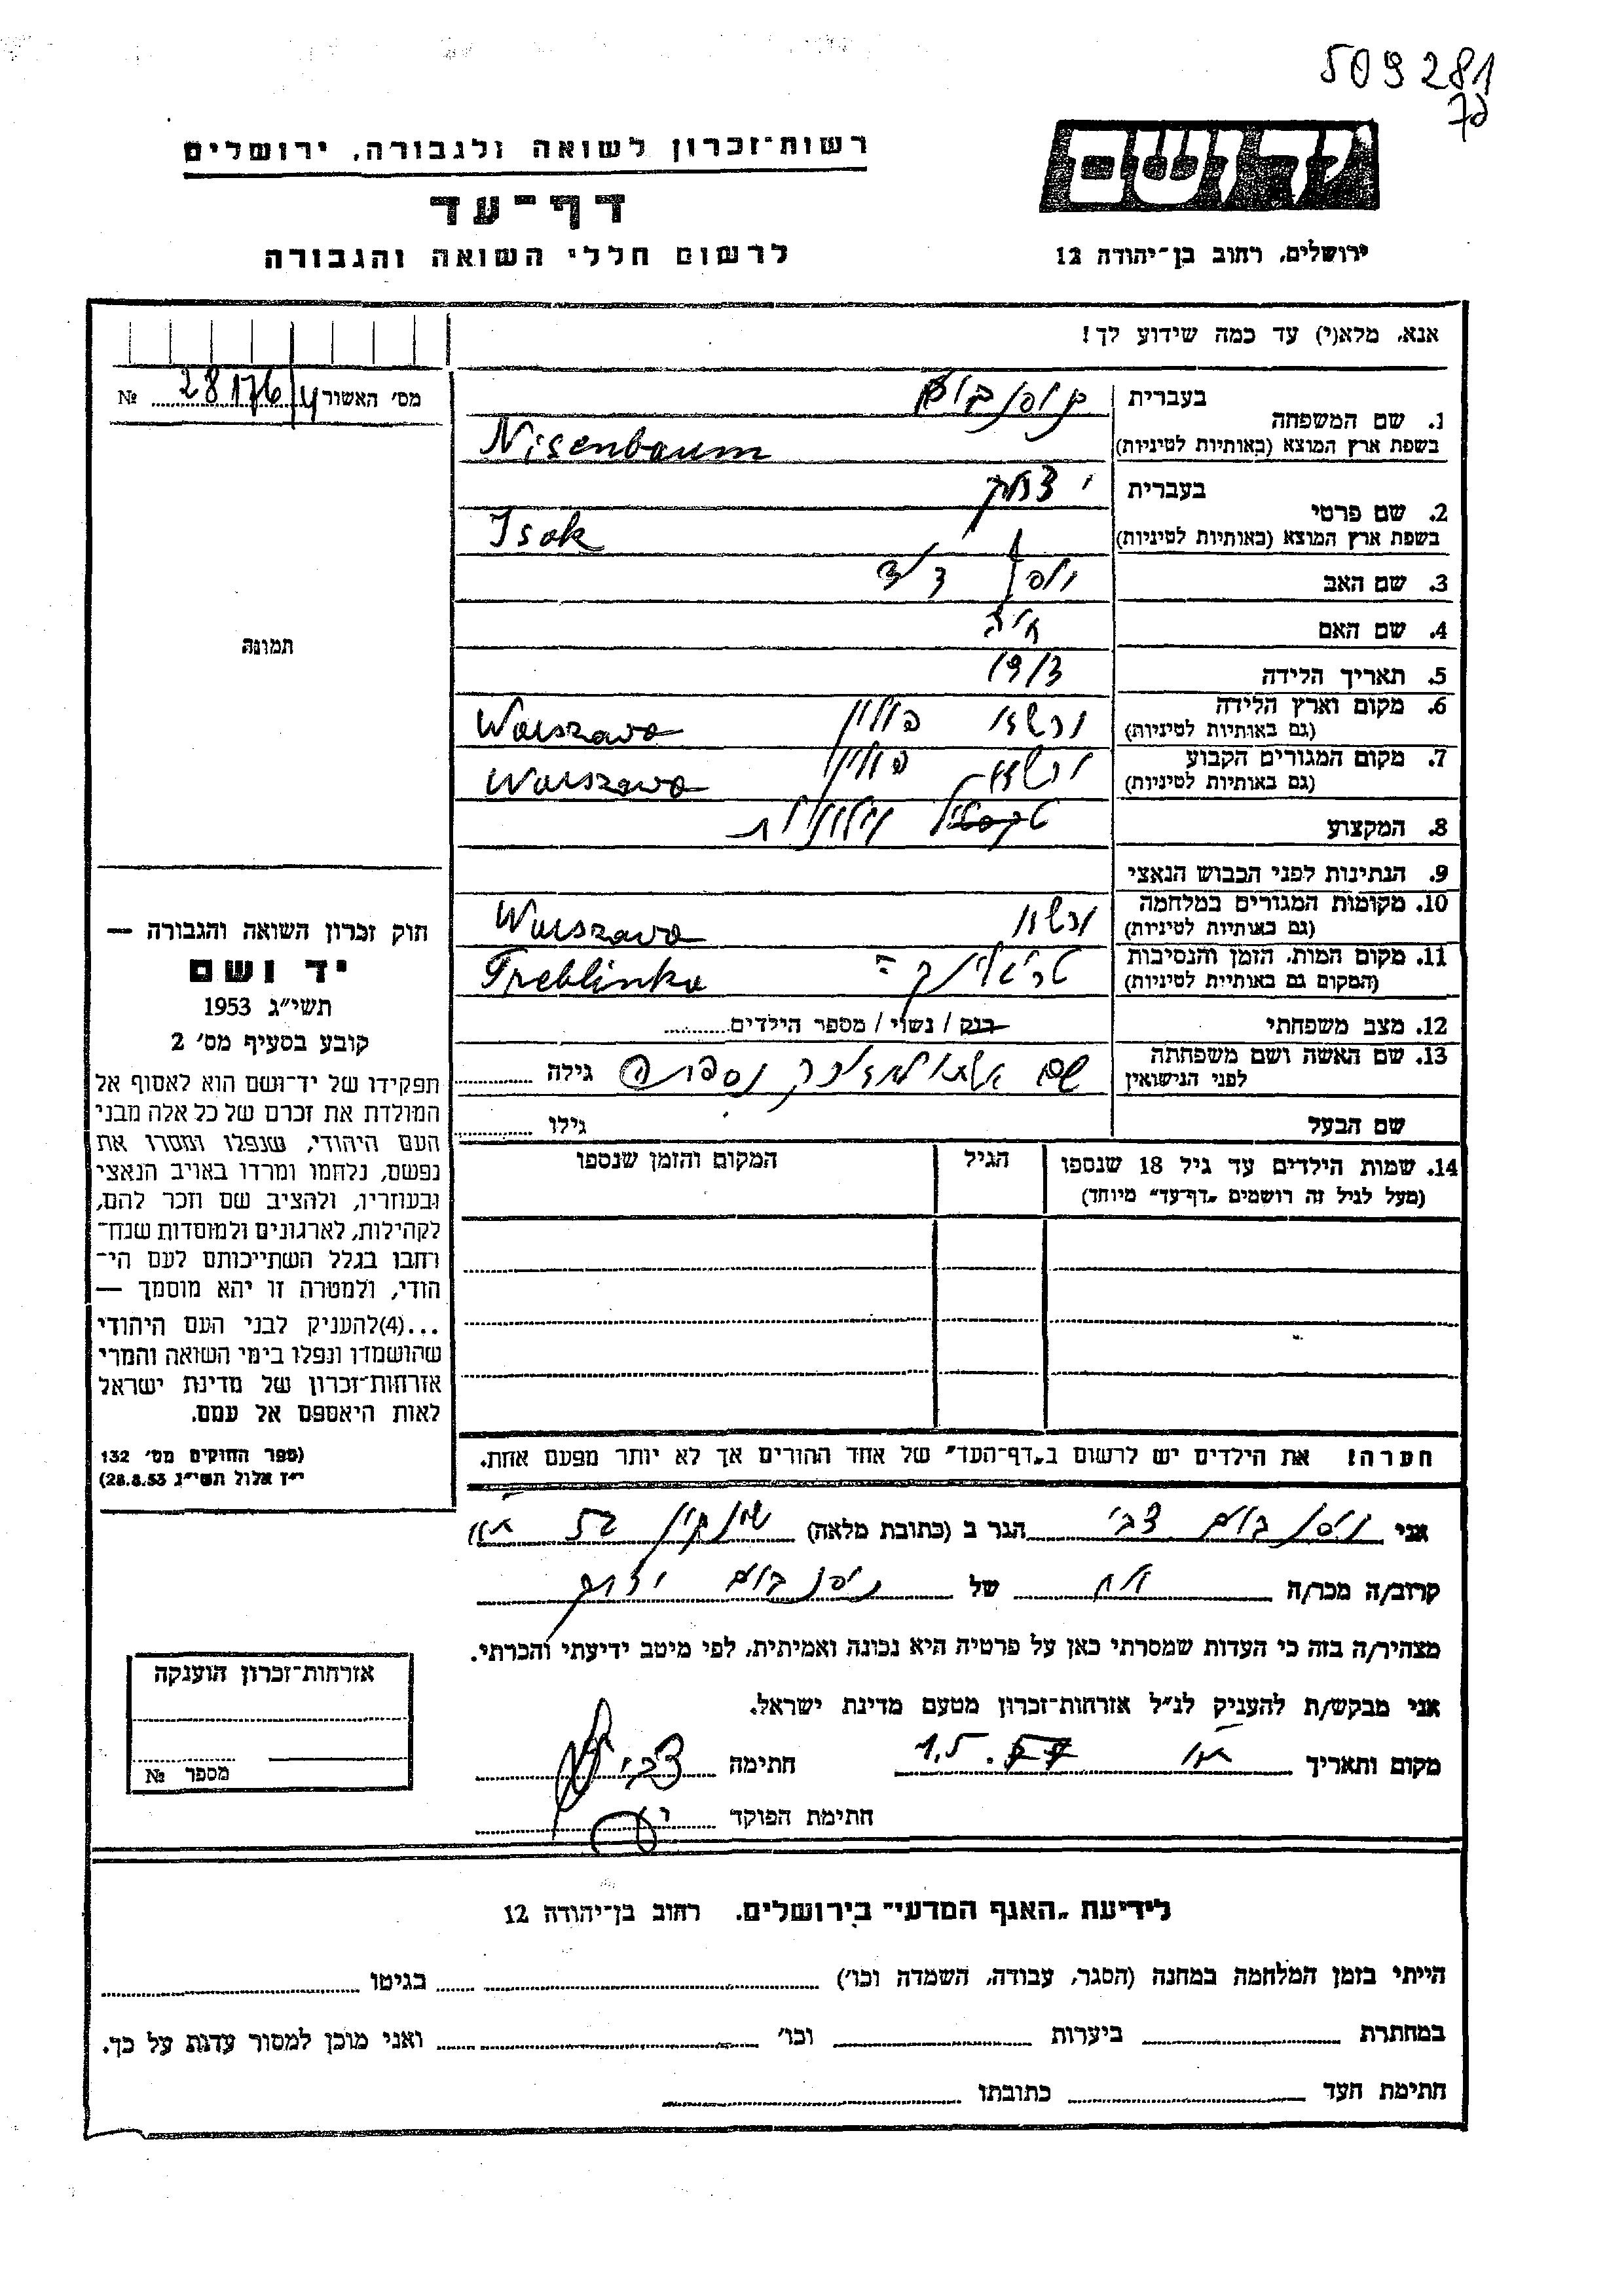 509281
70
יד ושם
ירושלים, רחוב בן־יהודה 12
רשות־זכרון לשואה ולגבורה, ירושלים
דף־עד
לרשום חללי השואה והגבורה
אנא, מלא(י) עד כמה שידוע לך!
מס׳ האשור 28176/4 №
1. שם המשפחה בעברית ניסנבוים
בשפת ארץ המוצא (באותיות לטיניות) Nisenbaum
2. שם פרטי בעברית יצחק
בשפת ארץ המוצא (באותיות לטיניות) Isak
3. שם האב
4. שם האם
5. תאריך הלידה 1913
6. מקום וארץ הלידה ורשא פולין Warszawa
(גם באותיות לטיניות)
7. מקום המגורים הקבוע ורשא פולין Warszawa
(גם באותיות לטיניות)
8. המקצוע
9. הנתינות לפני הכבוש הנאצי
10. מקומות המגורים במלחמה ורשא Warszawa
(גם באותיות לטיניות)
11. מקום המות, הזמן והנסיבות טרבלינקה Treblinka
(המקום גם באותיות לטיניות)
12. מצב משפחתי רנק / נשוי / מספר הילדים
13. שם האשה ושם משפחתה גילה
לפני הנישואין
שם הבעל גילו
14. שמות הילדים עד גיל 18 שנספו הגיל המקום והזמן שנספו
(מעל לגיל זה רושמים „דף־עד״ מיוחד)
הערה! את הילדים יש לרשום ב„דף־העד״ של אחד ההורים אך לא יותר מפעם אחת.
תמונה
חוק זכרון השואה והגבורה —
יד ושם
תשי״ג 1953
קובע בסעיף מס׳ 2
תפקידו של יד־ושם הוא לאסוף אל
המולדת את זכרם של כל אלה מבני
העם היהודי, שנפלו ומסרו את
נפשם, נלחמו ומרדו באויב הנאצי
ובעוזריו, ולהציב שם וזכר להם,
לקהילות, לארגונים ולמוסדות שנח־
רחבו בגלל השתייכותם לעם הי־
הודי, ולמטרה זו יהא מוסמך —
...(4)להעניק לבני העם היהודי
שהושמדו ונפלו בימי השואה והמרי
אזרחות־זכרון של מדינת ישראל
לאות היאספם אל עמם.
(ספר החוקים מס׳ 132
י״ז אלול תשי״ג 28.8.53)
אני ניסנבוים צבי הגר ב (כתובת מלאה)
קרוב/ה מכר/ה אח של ניסנבוים יצחק
מצהיר/ה בזה כי העדות שמסרתי כאן על פרטיה היא נכונה ואמיתית, לפי מיטב ידיעתי והכרתי.
אני מבקש/ת להעניק לנ״ל אזרחות־זכרון מטעם מדינת ישראל.
מקום ותאריך 1.5.57 חתימה
חתימת הפוקד
אזרחות־זכרון הוענקה
מספר №
לידיעת „האגף המדעי״ בירושלים. רחוב בן־יהודה 12
הייתי בזמן המלחמה במחנה (הסגר, עבודה, השמדה וכו׳) בגיטו
במחתרת ביערות וכו׳ ואני מוכן למסור עדות על כך.
חתימת העד כתובתו